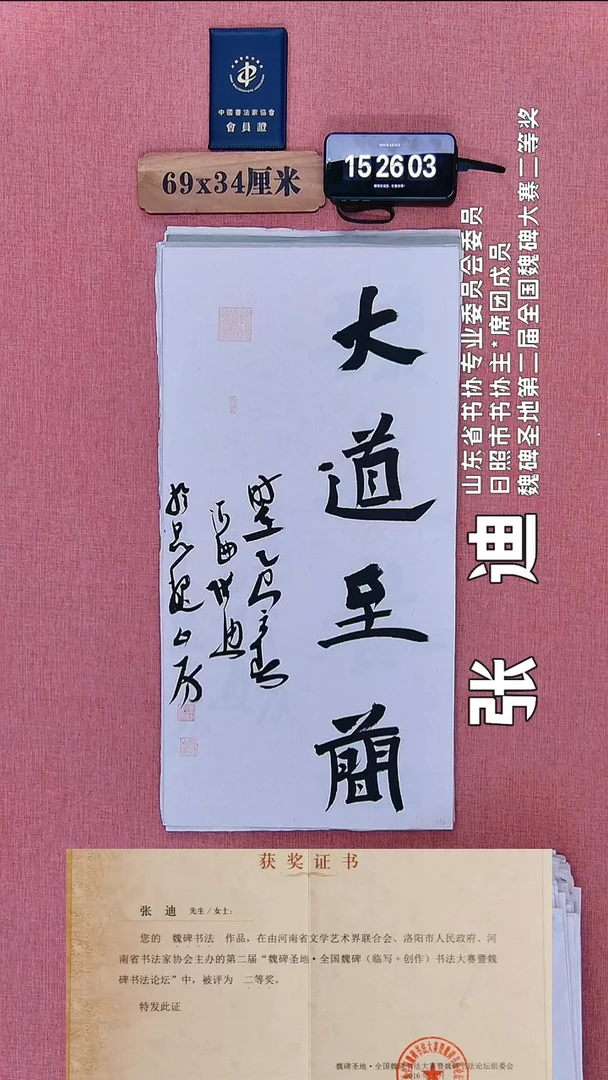 中國書法家協會
會員證
69x34厘米
15 26 03
大道至簡
時在乙巳立春
张迪
山东省书协专业委员会委员
日照市书协主*席团成员
魏碑圣地第二届全国魏碑大赛二等奖
获奖证书
张 迪 先生/女士：
您的 魏碑书法 作品，在由河南省文学艺术界联合会、洛阳市人民政府、河
南省书法家协会主办的第二届“魏碑圣地·全国魏碑（临写+创作）书法大赛暨魏
碑书法论坛”中，被评为 二等奖。
特发此证
魏碑圣地·全国魏碑书法大赛暨魏碑书法论坛组委会